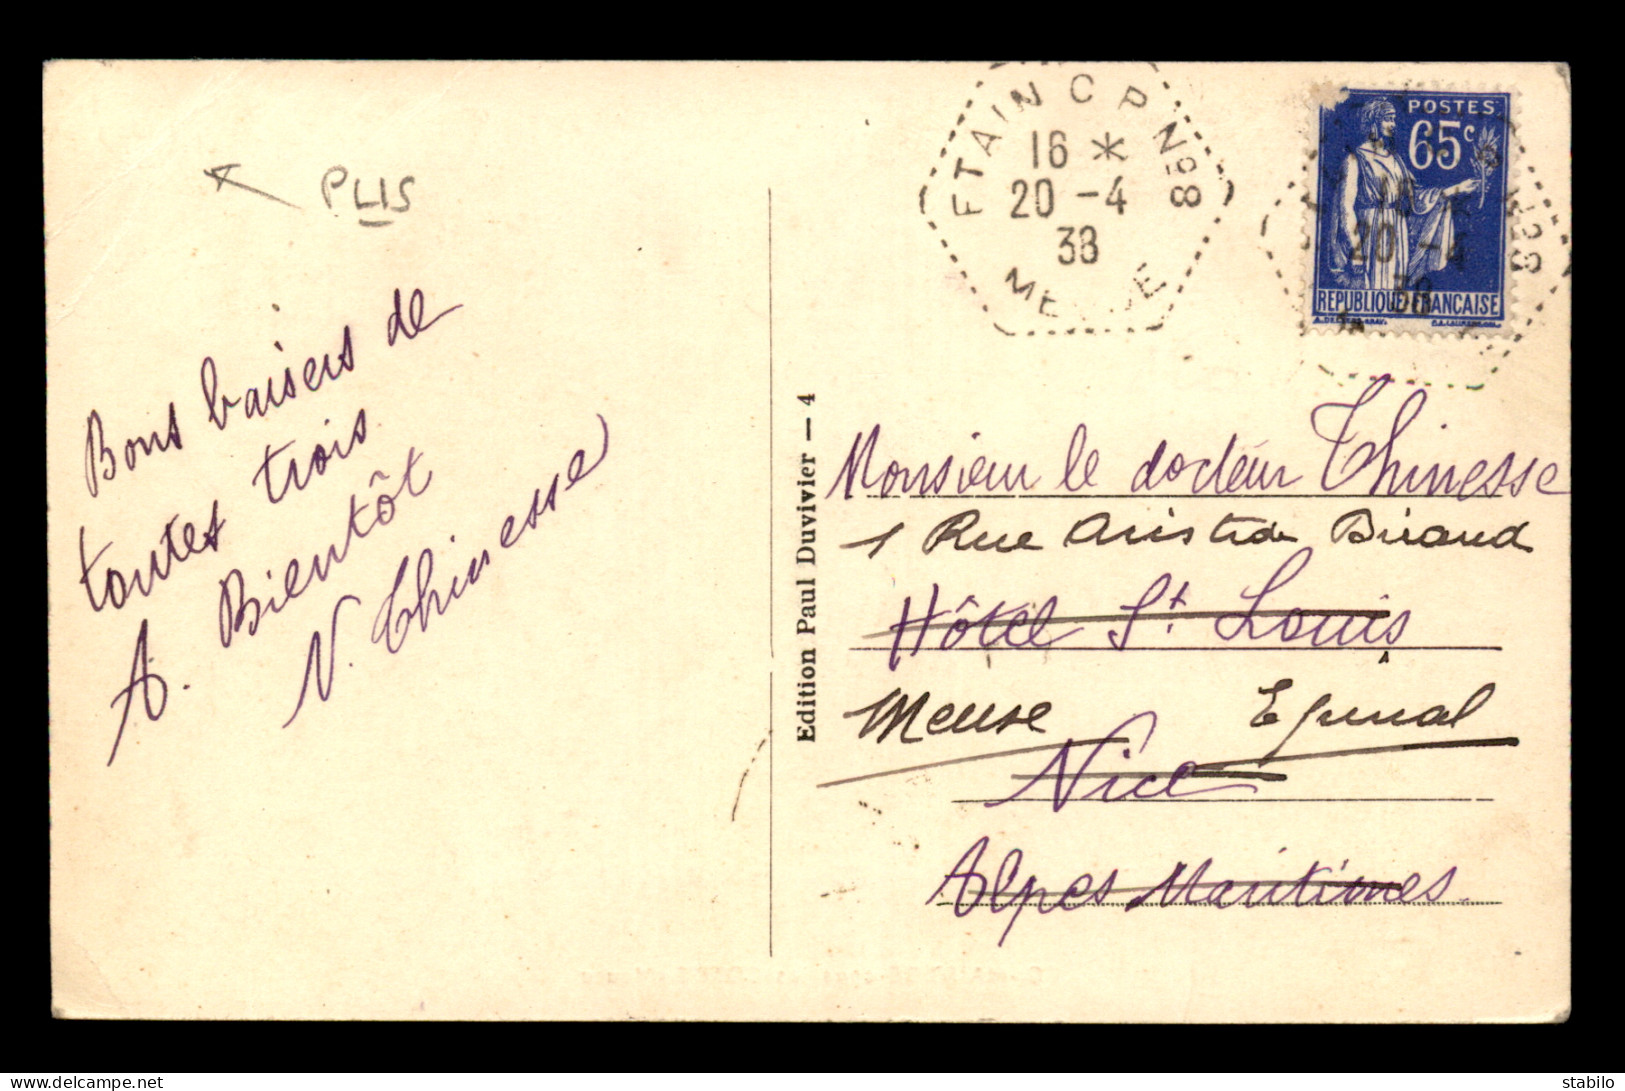 PLIS
Bons baisers de
toutes trois
A. Bientôt
N. Thinesse
Edition Paul Duvivier — 4
ETAIN C P N°8
16 *
20 -4
38
MEUSE
POSTES
65c
REPUBLIQUE FRANCAISE
16 *
20 -4
38
Monsieur le docteur Thinesse
1 Rue Aristide Briand
Hôtel St. Louis
Meuse Epinal
Nice
Alpes Maritimes.
delcampe.net
stabilo